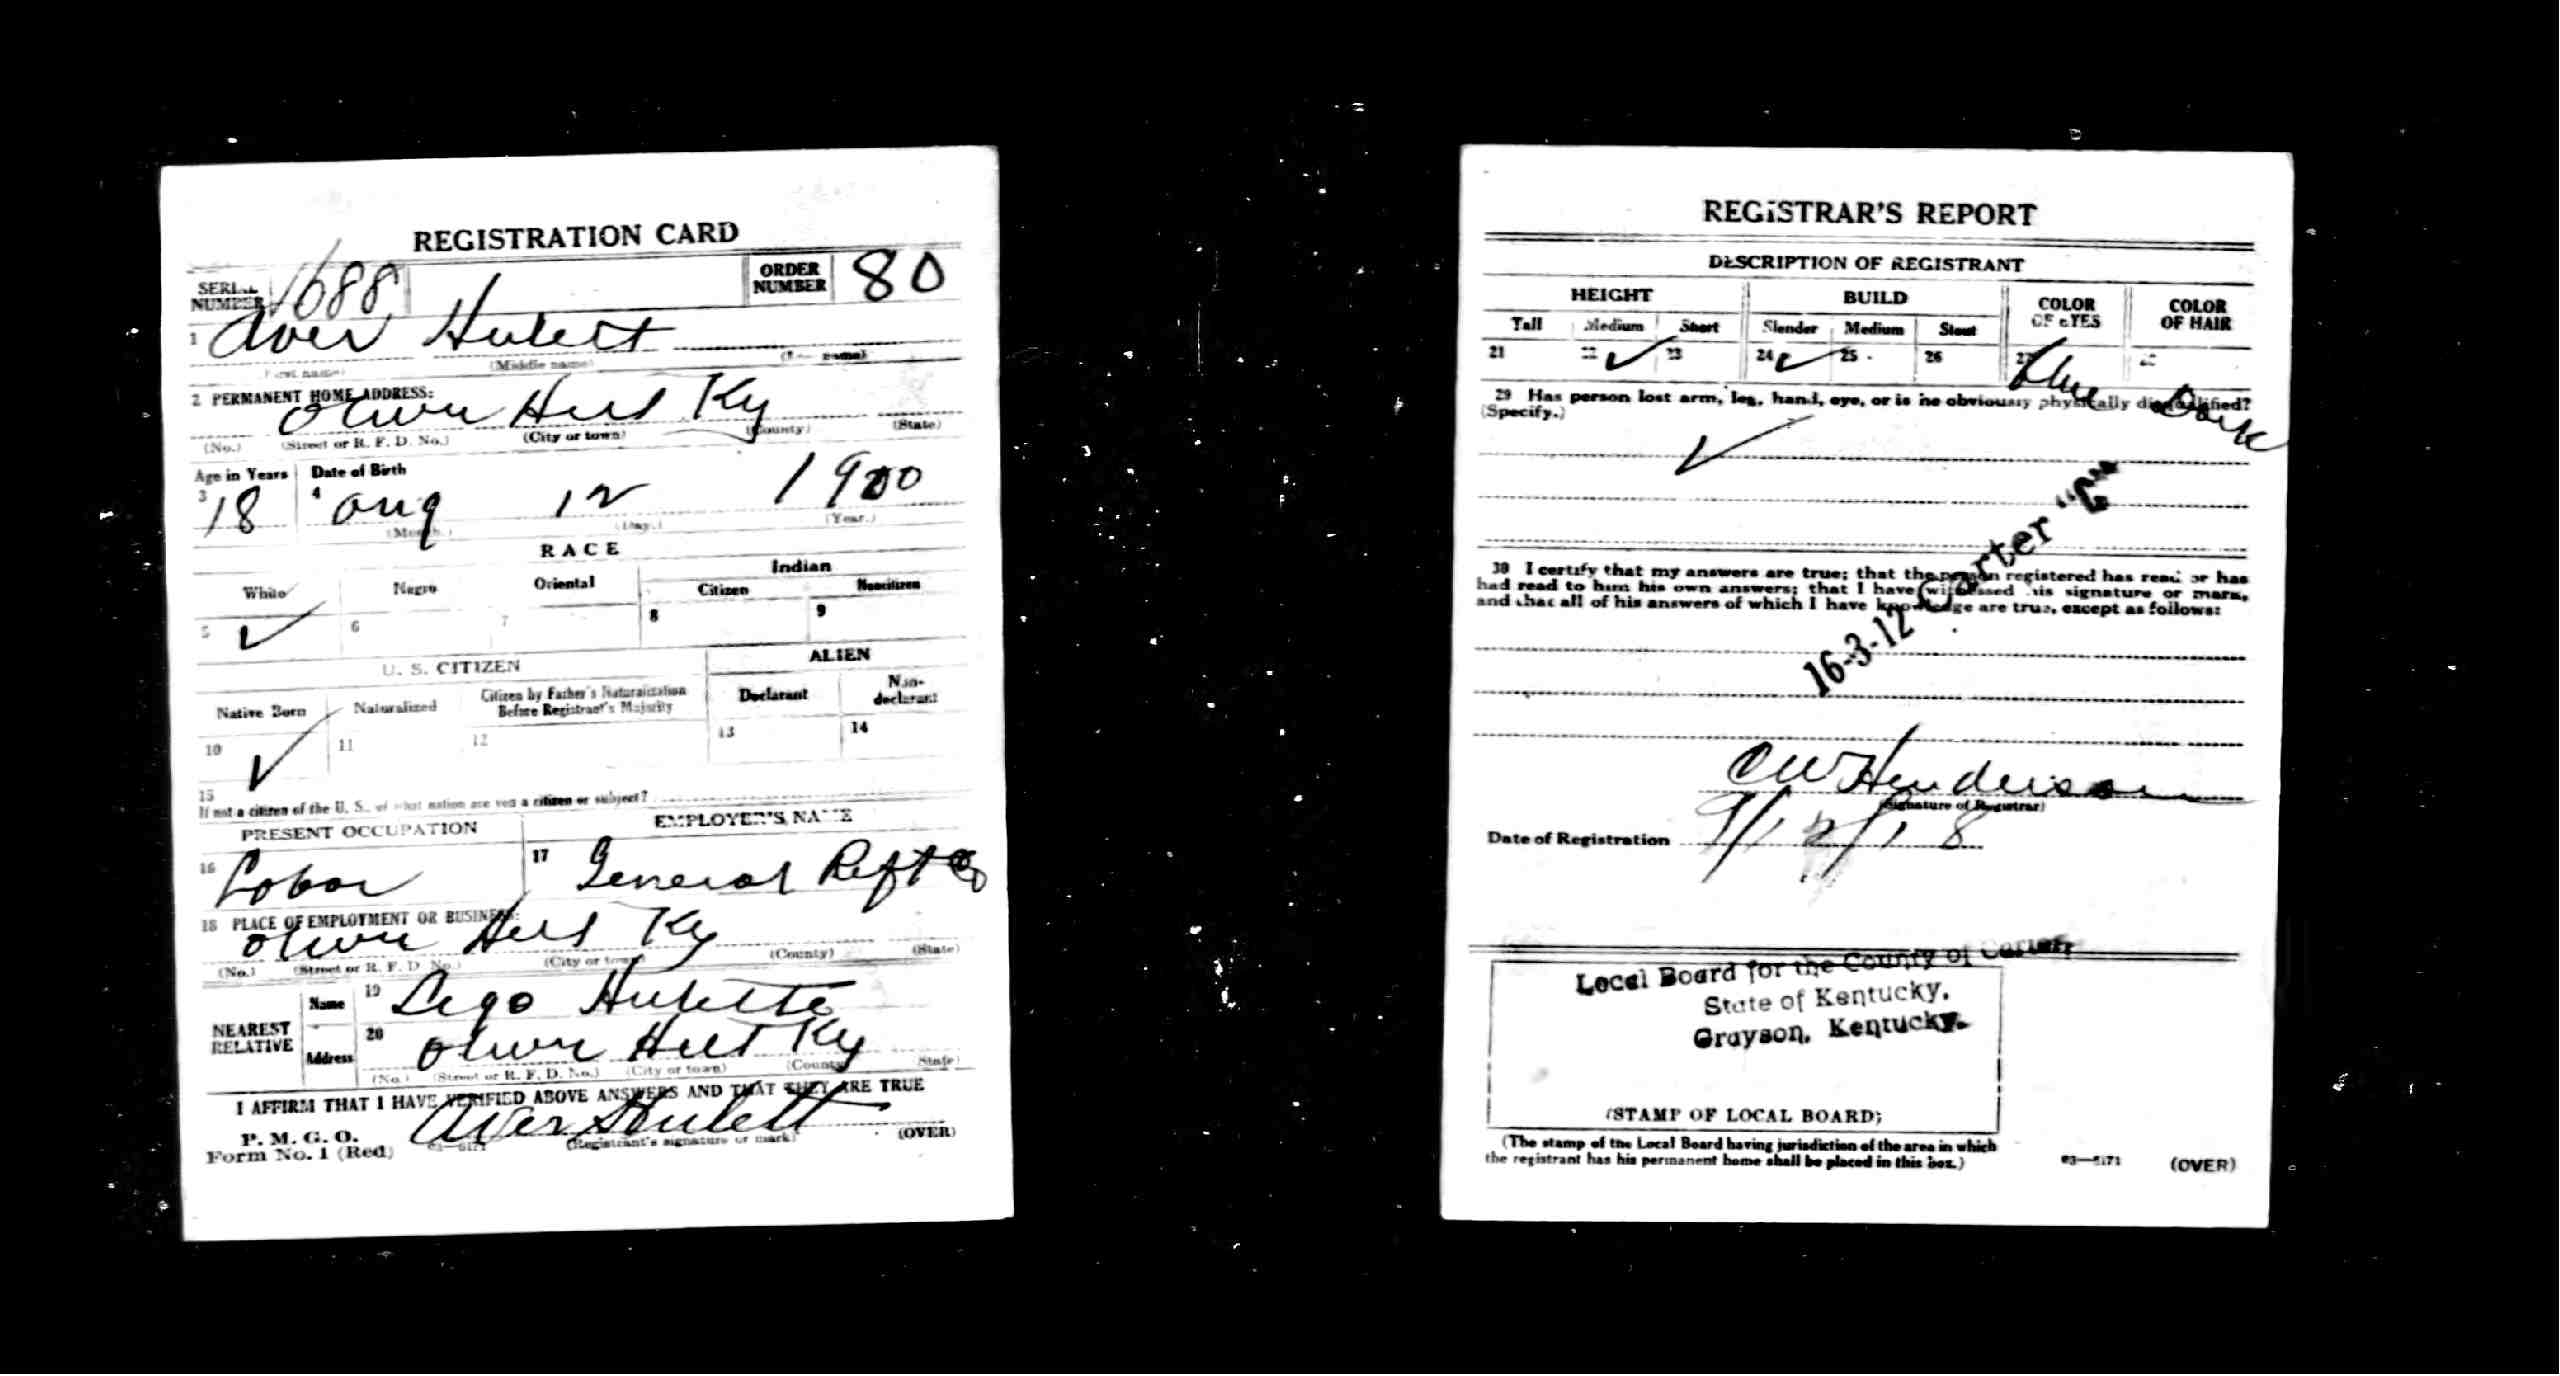 REGISTRATION CARD
SERIAL NUMBER 1688 ORDER NUMBER 80
1 Aver Hulett
(First name) (Middle name) (Last name)
2 PERMANENT HOME ADDRESS:
Olive Hill Ky
(No.) (Street or R. F. D. No.) (City or town) (County) (State)
Age in Years Date of Birth
3 18 4 Aug 12 1900
(Month.) (Day.) (Year.)
RACE
White Negro Oriental Indian
Citizen Noncitizen
5 ✓ 6 7 8 9
U. S. CITIZEN ALIEN
Native Born Naturalized Citizen by Father's Naturalization Before Registrant's Majority Declarant Non-declarant
10 ✓ 11 12 13 14
15
If not a citizen of the U. S., of what nation are you a citizen or subject?
PRESENT OCCUPATION EMPLOYER'S NAME
16 Labor 17 General Reft Co
18 PLACE OF EMPLOYMENT OR BUSINESS:
Olive Hill Ky
(No.) (Street or R. F. D. No.) (City or town) (County) (State)
NEAREST RELATIVE
Name 19 Hulette
Address 20 Olive Hill Ky
(No.) (Street or R. F. D. No.) (City or town) (County) (State)
I AFFIRM THAT I HAVE VERIFIED ABOVE ANSWERS AND THAT THEY ARE TRUE
P. M. G. O.
Form No. 1 (Red) 03—6171 Aver Hulett
(Registrant's signature or mark) (OVER)
REGISTRAR'S REPORT
DESCRIPTION OF REGISTRANT
HEIGHT BUILD COLOR OF EYES COLOR OF HAIR
Tall Medium Short Slender Medium Stout
21 22 ✓ 23 24 ✓ 25 26 27 Blue 28 Dark
29 Has person lost arm, leg, hand, eye, or is he obviously physically disqualified?
(Specify.)
✓
30 I certify that my answers are true; that the person registered has read or has
had read to him his own answers; that I have witnessed his signature or mark,
and that all of his answers of which I have knowledge are true, except as follows:
16-3-12 Carter "C"
C W Henderson
(Signature of Registrar)
Date of Registration 9/12/18
Local Board for the County of Carter,
State of Kentucky,
Grayson, Kentucky.
(STAMP OF LOCAL BOARD)
(The stamp of the Local Board having jurisdiction of the area in which
the registrant has his permanent home shall be placed in this box.)
03—6171 (OVER)